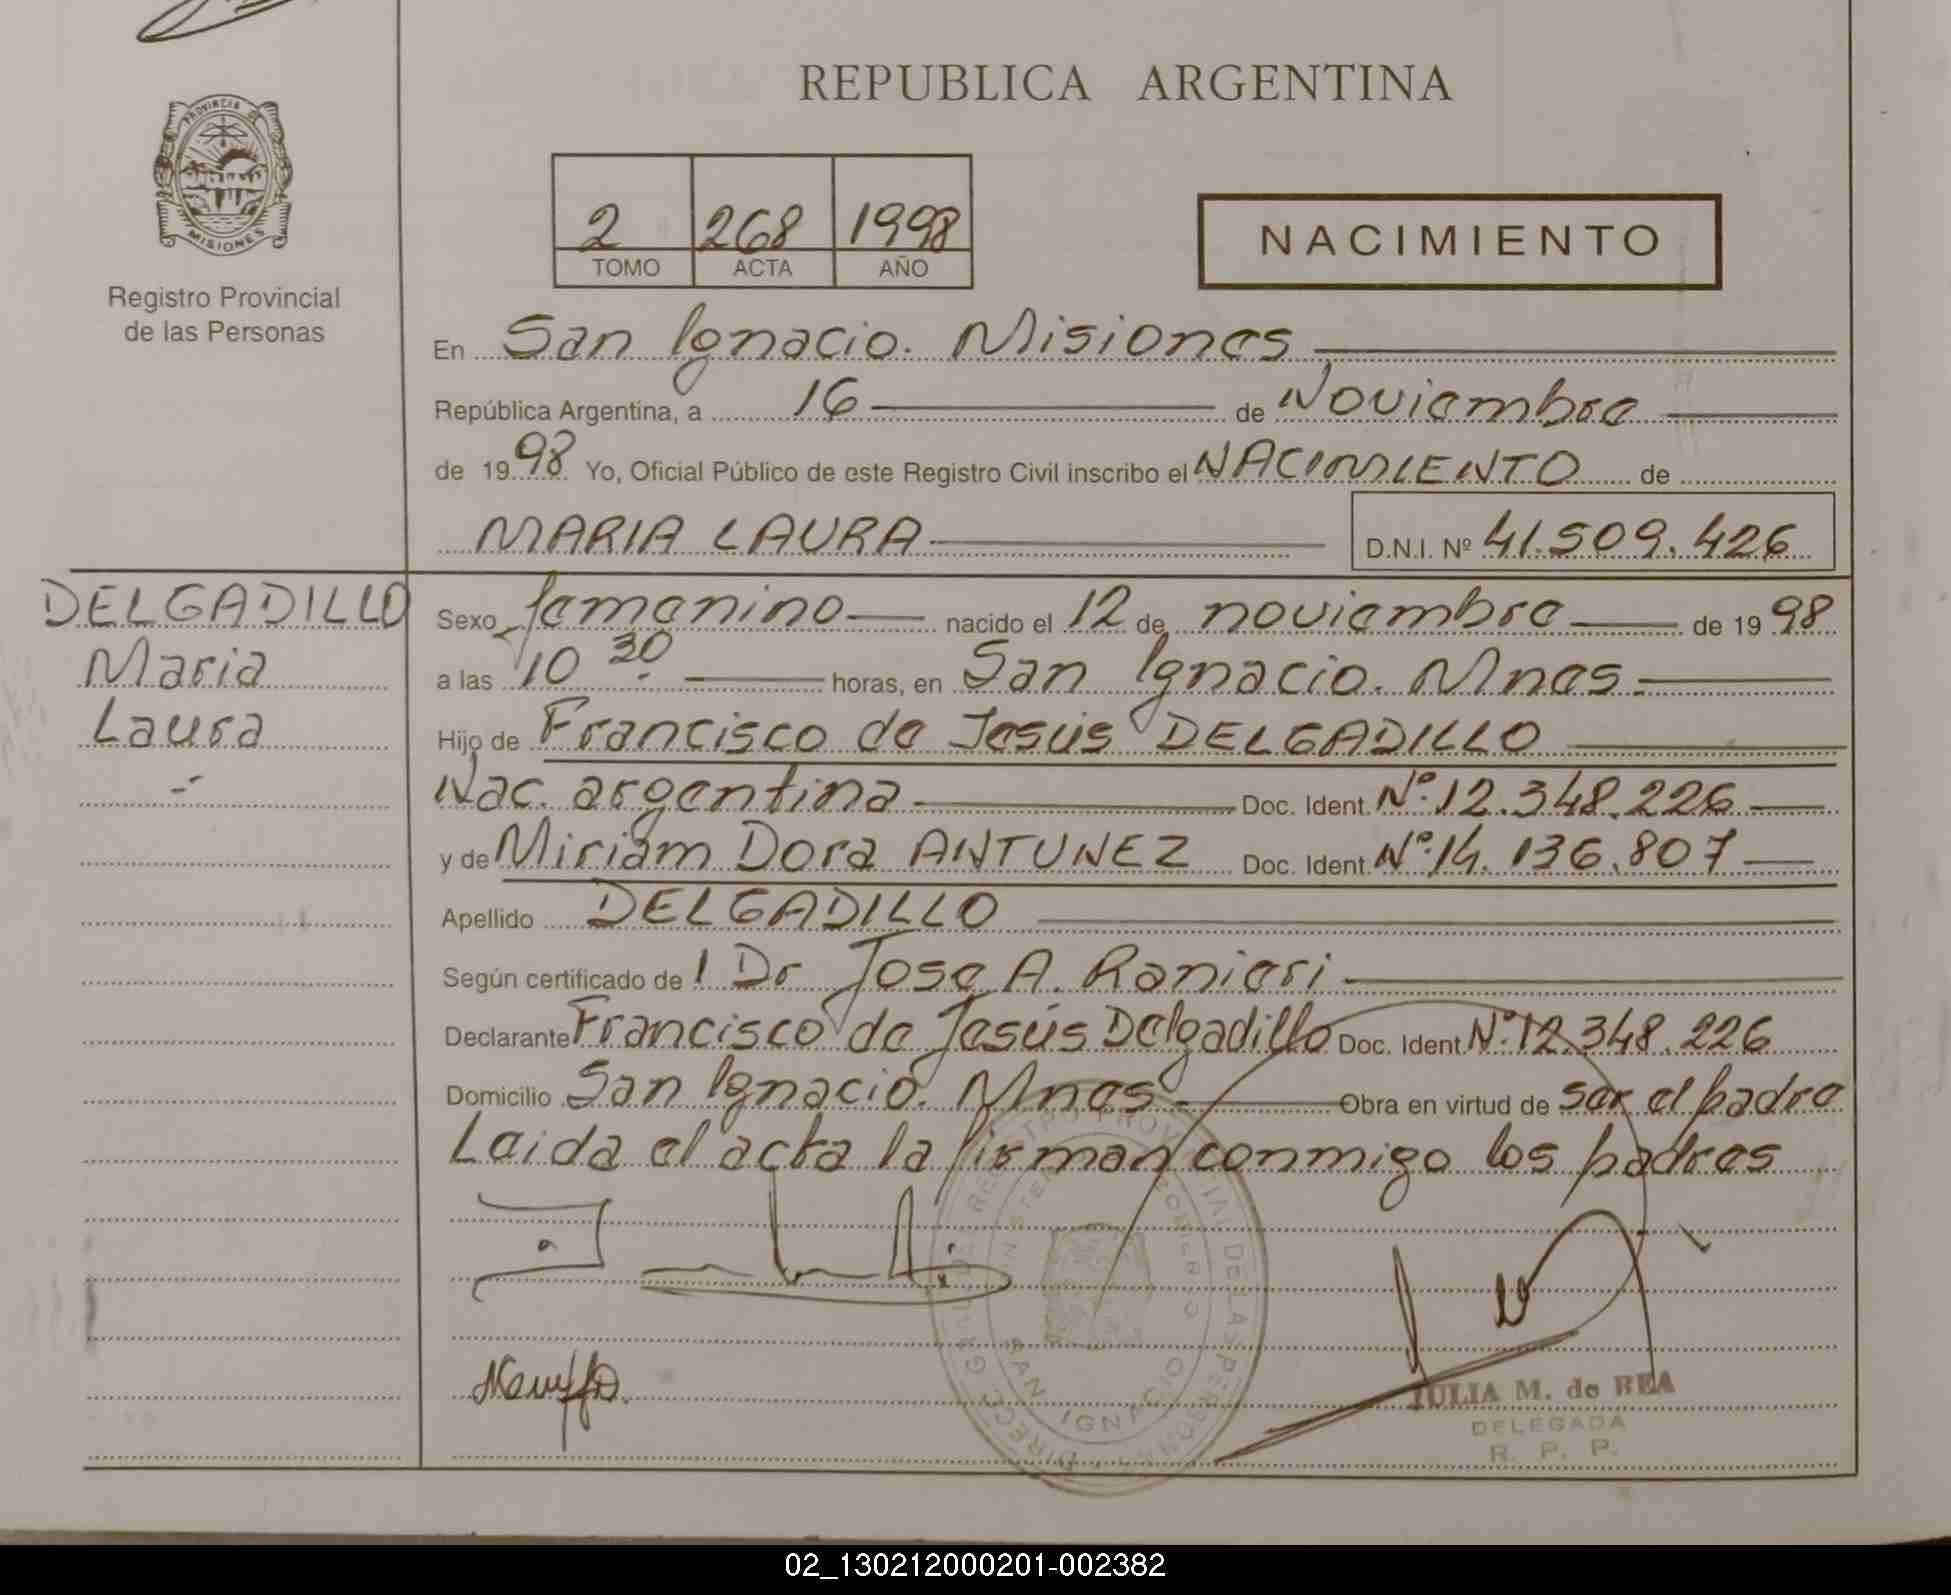 REPUBLICA ARGENTINA
PROVINCIA DE
MISIONES
Registro Provincial
de las Personas
2 268 1998
TOMO ACTA AÑO
NACIMIENTO
En San Ignacio. Misiones
República Argentina, a 16 de Noviembre
de 1998 Yo, Oficial Público de este Registro Civil inscribo el NACIMIENTO de
MARIA LAURA D.N.I. Nº 41.509.426
DELGADILLO
Maria
Laura
Sexo femenino nacido el 12 de noviembre de 1998
a las 10 30 horas, en San Ignacio. Mnes.
Hijo de Francisco de Jesús DELGADILLO
Nac. argentina Doc. Ident. Nº: 12.348.226
y de Miriam Dora ANTUNEZ Doc. Ident. Nº: 14.136.807
Apellido DELGADILLO
Según certificado de l Dr Jose A. Ranieri
Declarante Francisco de Jesús Delgadillo Doc. Ident. Nº: 12.348.226
Domicilio San Ignacio. Mnes. Obra en virtud de ser el padre
Leida el acta la firman conmigo los padres
SAN IGNACIO
JULIA M. de REA
DELEGADA
R. P. P.
02_130212000201-002382